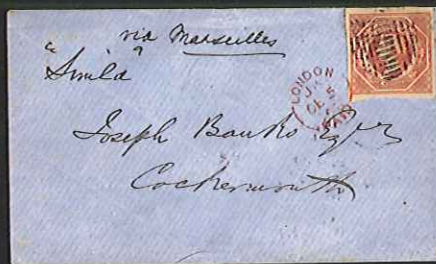 via Marseilles
"Simla"
LONDON
PAID
Joseph Banks Esqr
Cockermouth